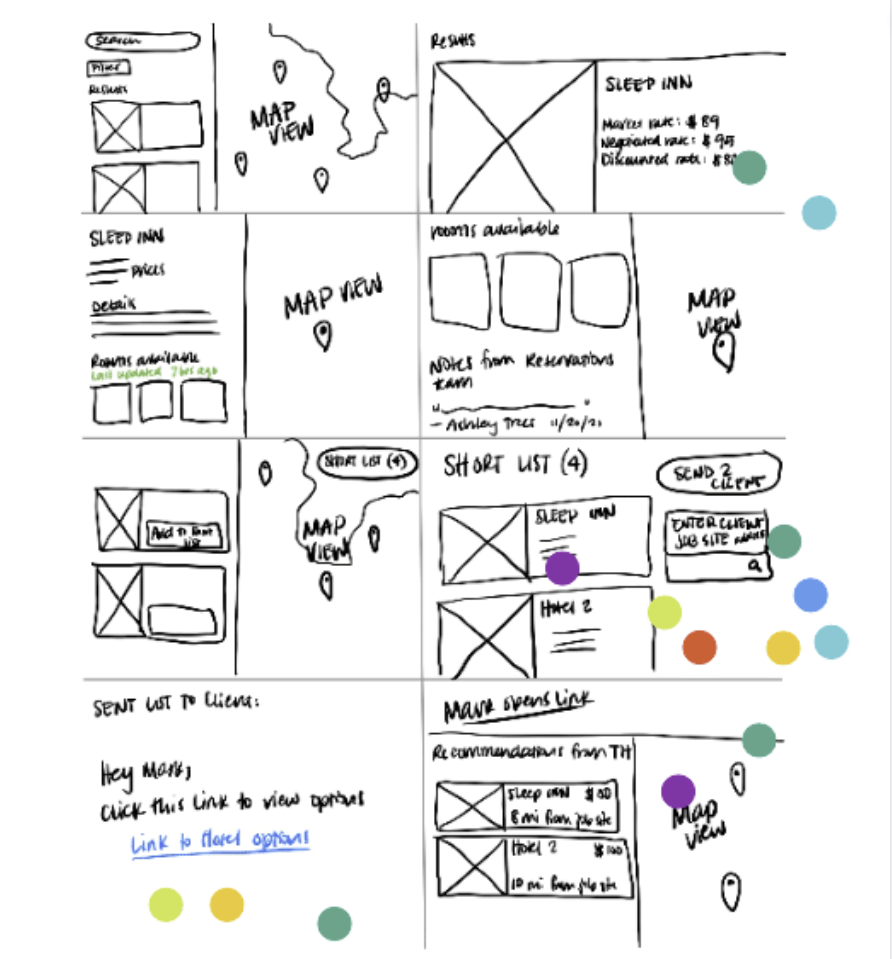 Search
Filter
Results
MAP
VIEW
Results
SLEEP INN
Market rate: $89
Negotiated rate: $95
Discounted rate: $80
SLEEP INN
prices
Details
Rooms available
Last updated 7hrs ago
MAP VIEW
rooms available
Notes from Reservations
team
— Ashley Trees 11/20/21
MAP
VIEW
Add to short
list
SHORT LIST (4)
MAP
VIEW
SHORT LIST (4)
SLEEP INN
Hotel 2
SEND 2
CLIENT
ENTER CLIENT
JOB SITE
SENT LIST TO Client:
Hey Mark,
Click this link to view options
Link to Hotel options
Mark opens link
Recommendations from TH
Sleep INN $100
8 mi from job site
Hotel 2 $100
10 mi from job site
Map
view